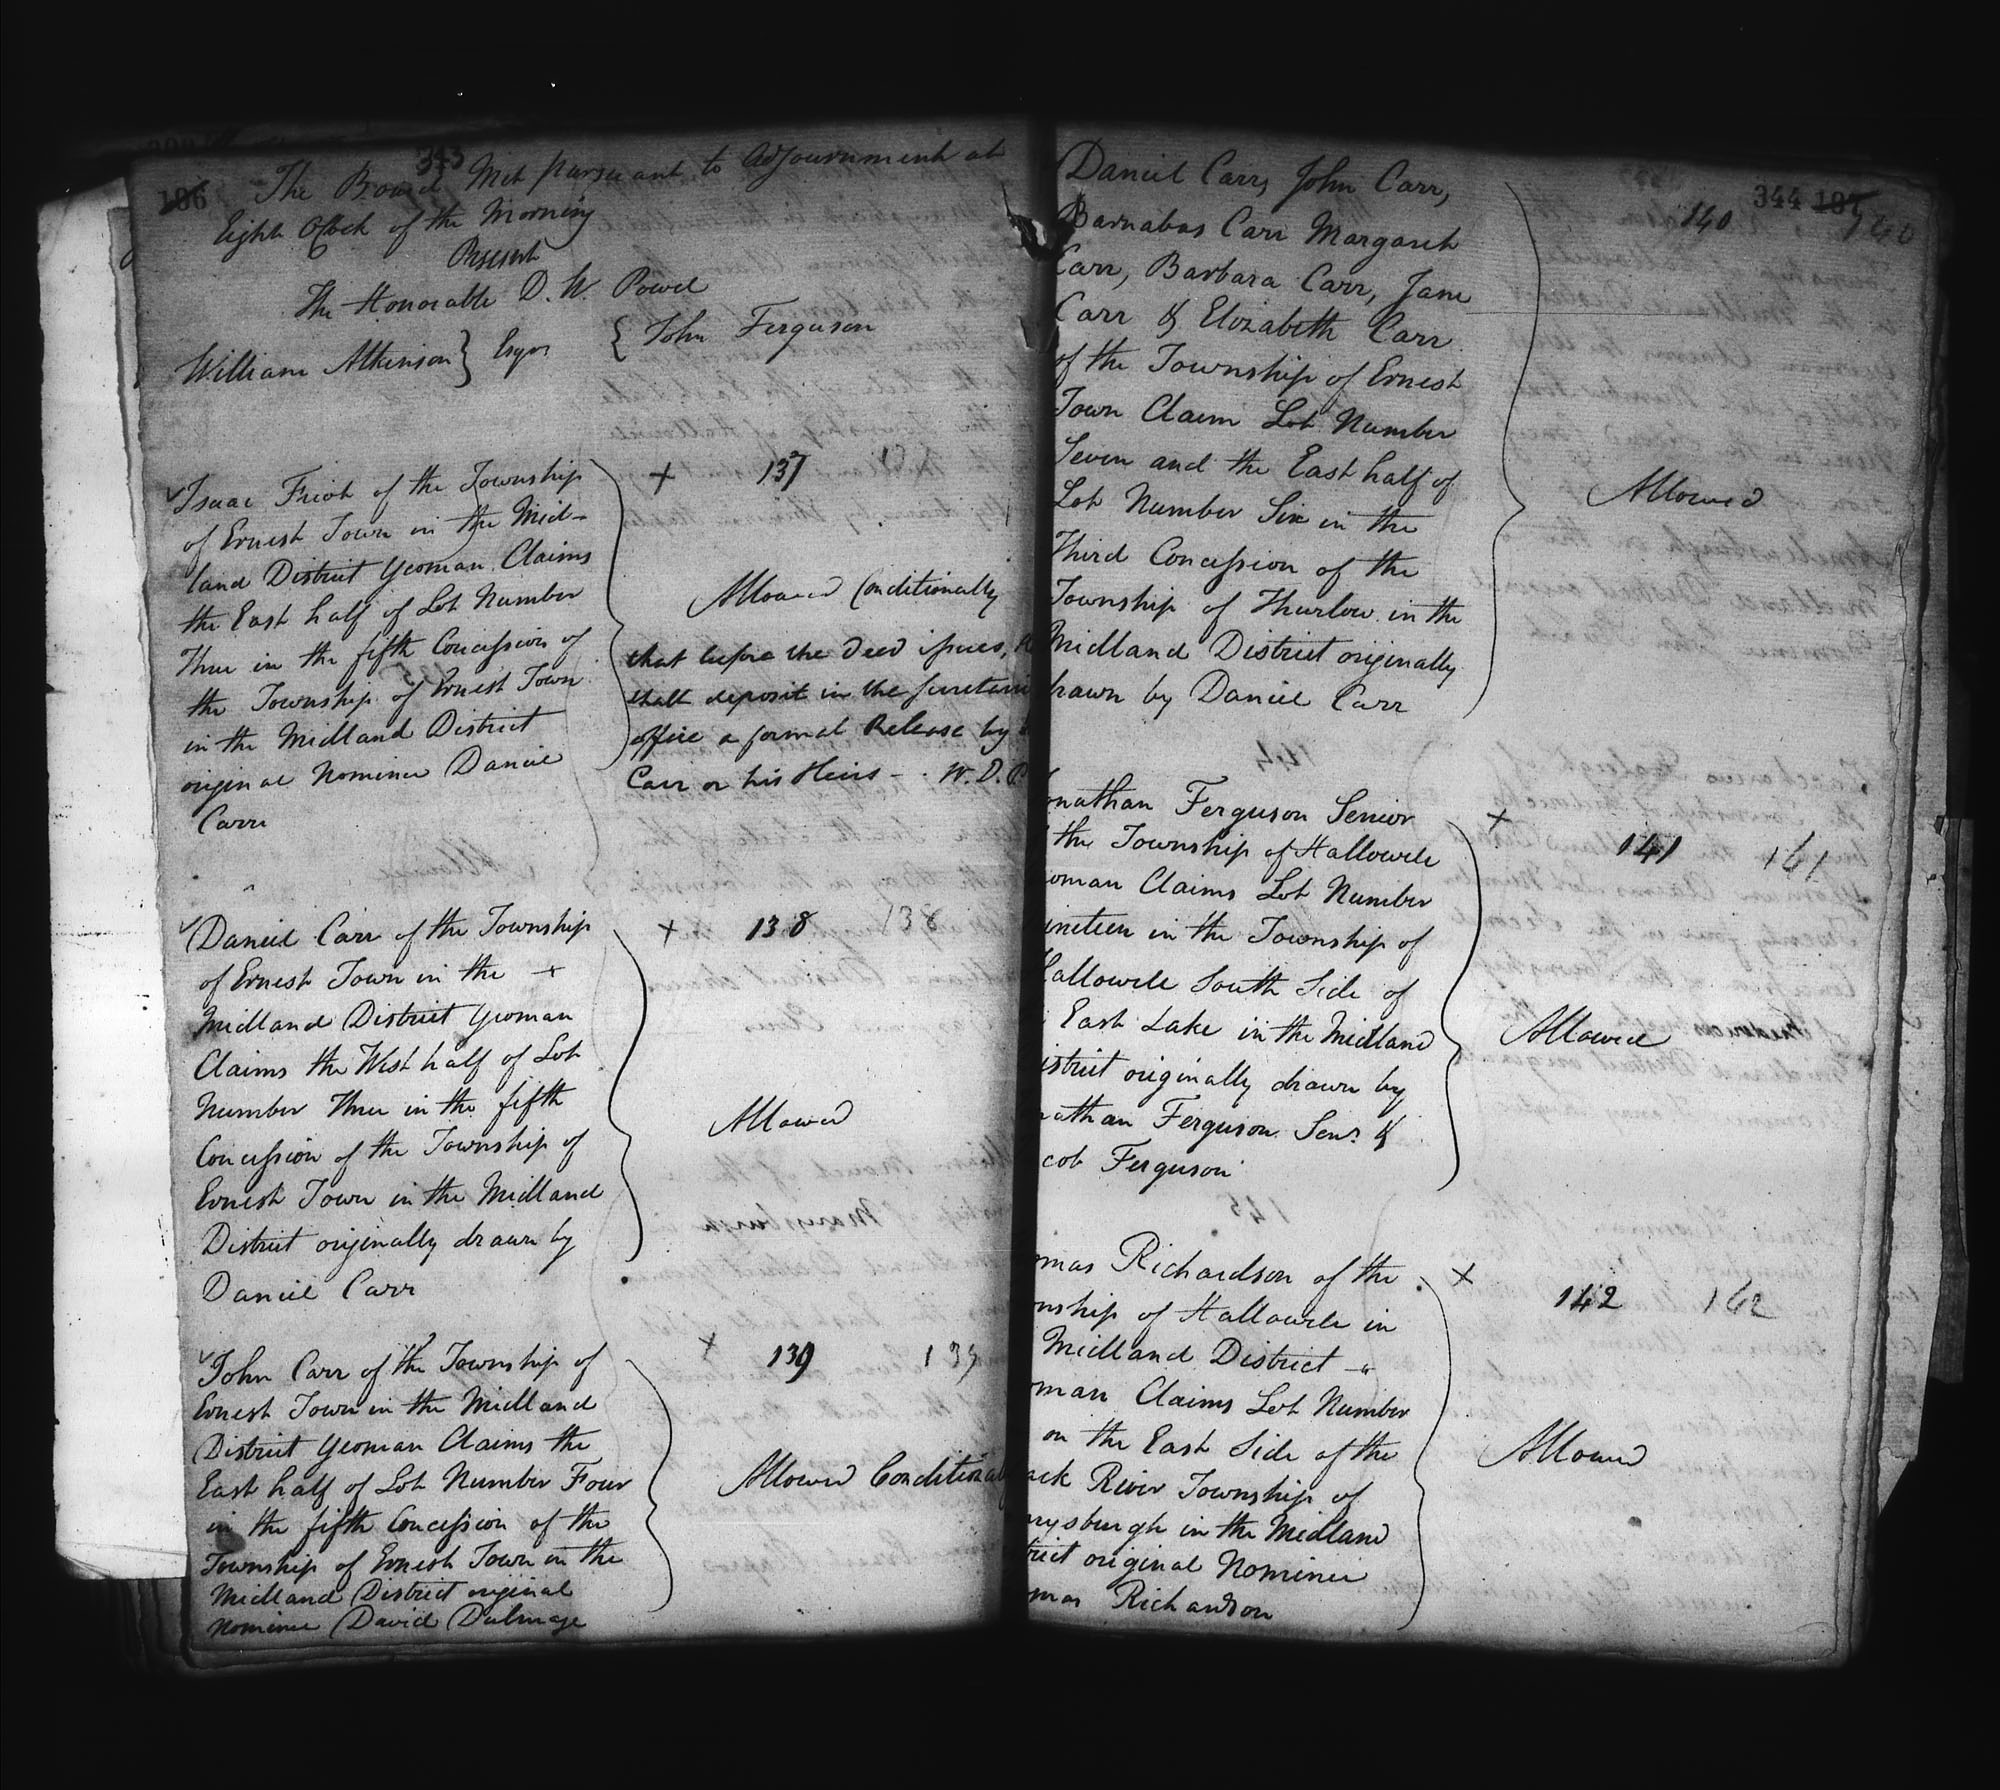 343
186
The Board Met pursuant to Adjournment at
Eight Oclock of the Morning
Present
The Honorable D. W. Powel
William Atkinson } Esqrs { John Ferguson
Isaac Friot of the Township
of Ernest Town in the Mid-
land District Yeoman Claims
the East half of Lot Number
Three in the fifth Concession of
the Township of Ernest Town
in the Midland District
original Nominee Daniel
Carr
+ 137
Allowed Conditionally
that before the Deed issues,
shall deposit in the
office a formal Release by
Carr or his Heirs - . W. D. P
Daniel Carr of the Township
of Ernest Town in the +
Midland District Yeoman
Claims the West half of Lot
Number Three in the fifth
Concession of the Township of
Ernest Town in the Midland
District originally drawn by
Daniel Carr
+ 138 138
Allowed
John Carr of the Township of
Ernest Town in the Midland
District Yeoman Claims the
East half of Lot Number Four
in the fifth Concession of the
Township of Ernest Town in the
Midland District original
Nominee David Dulmage
+ 139 139
Allowed Conditional
344 187
Daniel Carr, John Carr,
Barnabas Carr Margaret
Carr, Barbara Carr, Jane
Carr & Elizabeth Carr
of the Township of Ernest
Town Claim Lot Number
Seven and the East half of
Lot Number Six in the
Third Concession of the
Township of Thurlow in the
Midland District originally
drawn by Daniel Carr
140 140
Allowed
onathan Ferguson Senior
the Township of Hallowele
oman Claims Lot Number
ineteen in the Township of
Hallowele South Side of
East Lake in the Midland
istrict originally drawn by
nathan Ferguson Senr. &
cob Ferguson
+ 141 141
Allowed
omas Richardson of the
nship of Hallowele in
Midland District
oman Claims Lot Number
on the East Side of the
ack River Township of
rysburgh in the Midland
trict original Nominee
omas Richardson
+ 142 142
Allowed